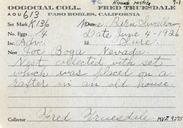 OOGOCIAL COLL. FRED TRUESDALE
AOU 613 PASO ROBLES, CALIFORNIA
Set Mark K136 Name
No. Eggs 4 Date June 4-1936
Loc. Nevada
Nest collected with set
which was placed on a
rafter in an old house
Collector Fred Truesdale